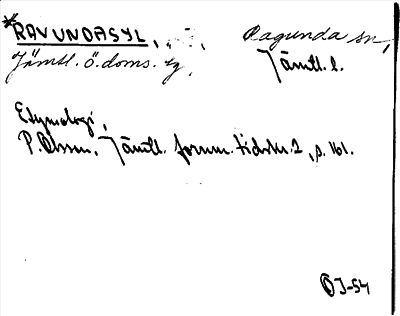 *RAVUNDASYL, Ragunda sn,
Jämtl. ö. doms. tg, Jämtl. l.
Etymologi,
P. Olsson, Jämtl. fornm. tidskr. 2, s. 161.
ÖJ-54